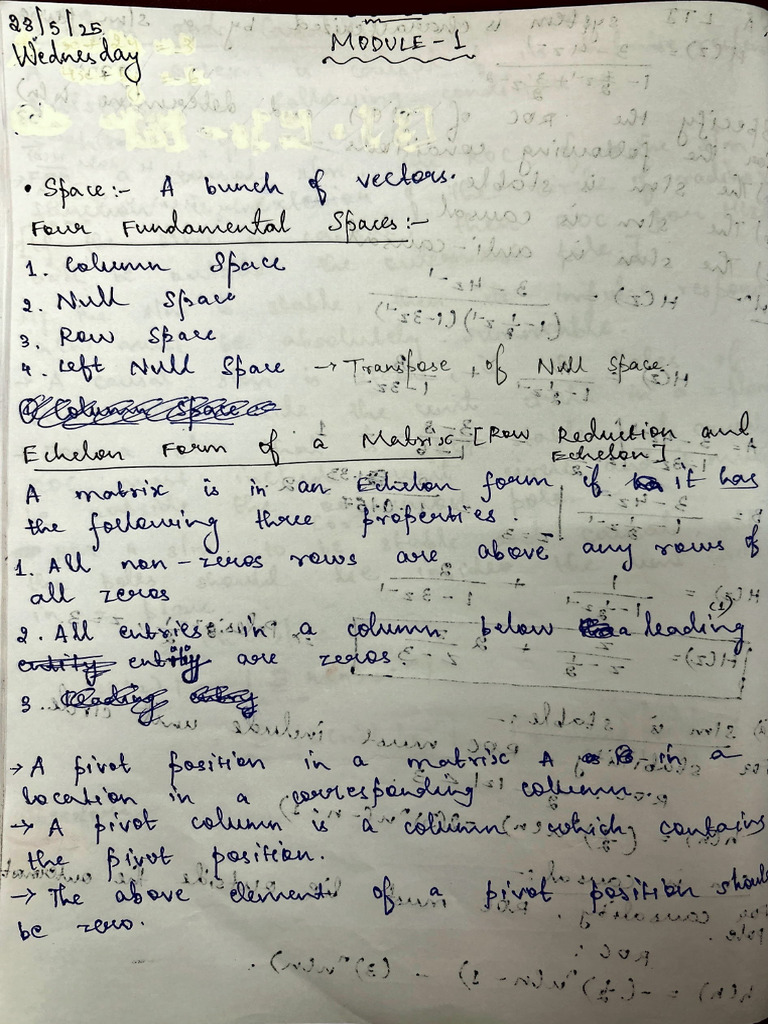 28/5/25
Wednesday
MODULE-1
• Space:- A bunch of vectors.
Four Fundamental Spaces:-
1. Column Space
2. Null Space
3. Row Space
4. Left Null Space → Transpose of Null Space
Echelon Form of a Matrix [Row Reduction and
Echelon]
A matrix is in an Echelon form if it has
the following three properties.
1. All non-zeros rows are above any rows of
all zeros
2. All entries in a column below a leading (1)
entity are zeros
3.
→ A pivot position in a matrix A is in a
location in a corresponding column
→ A pivot column is a column which contains
the pivot position.
→ The above element of a pivot position should
be zero.